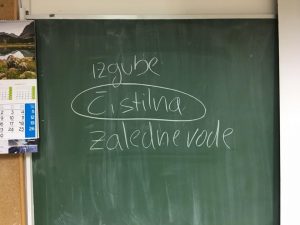 izgube
čistilna
zaledne vode